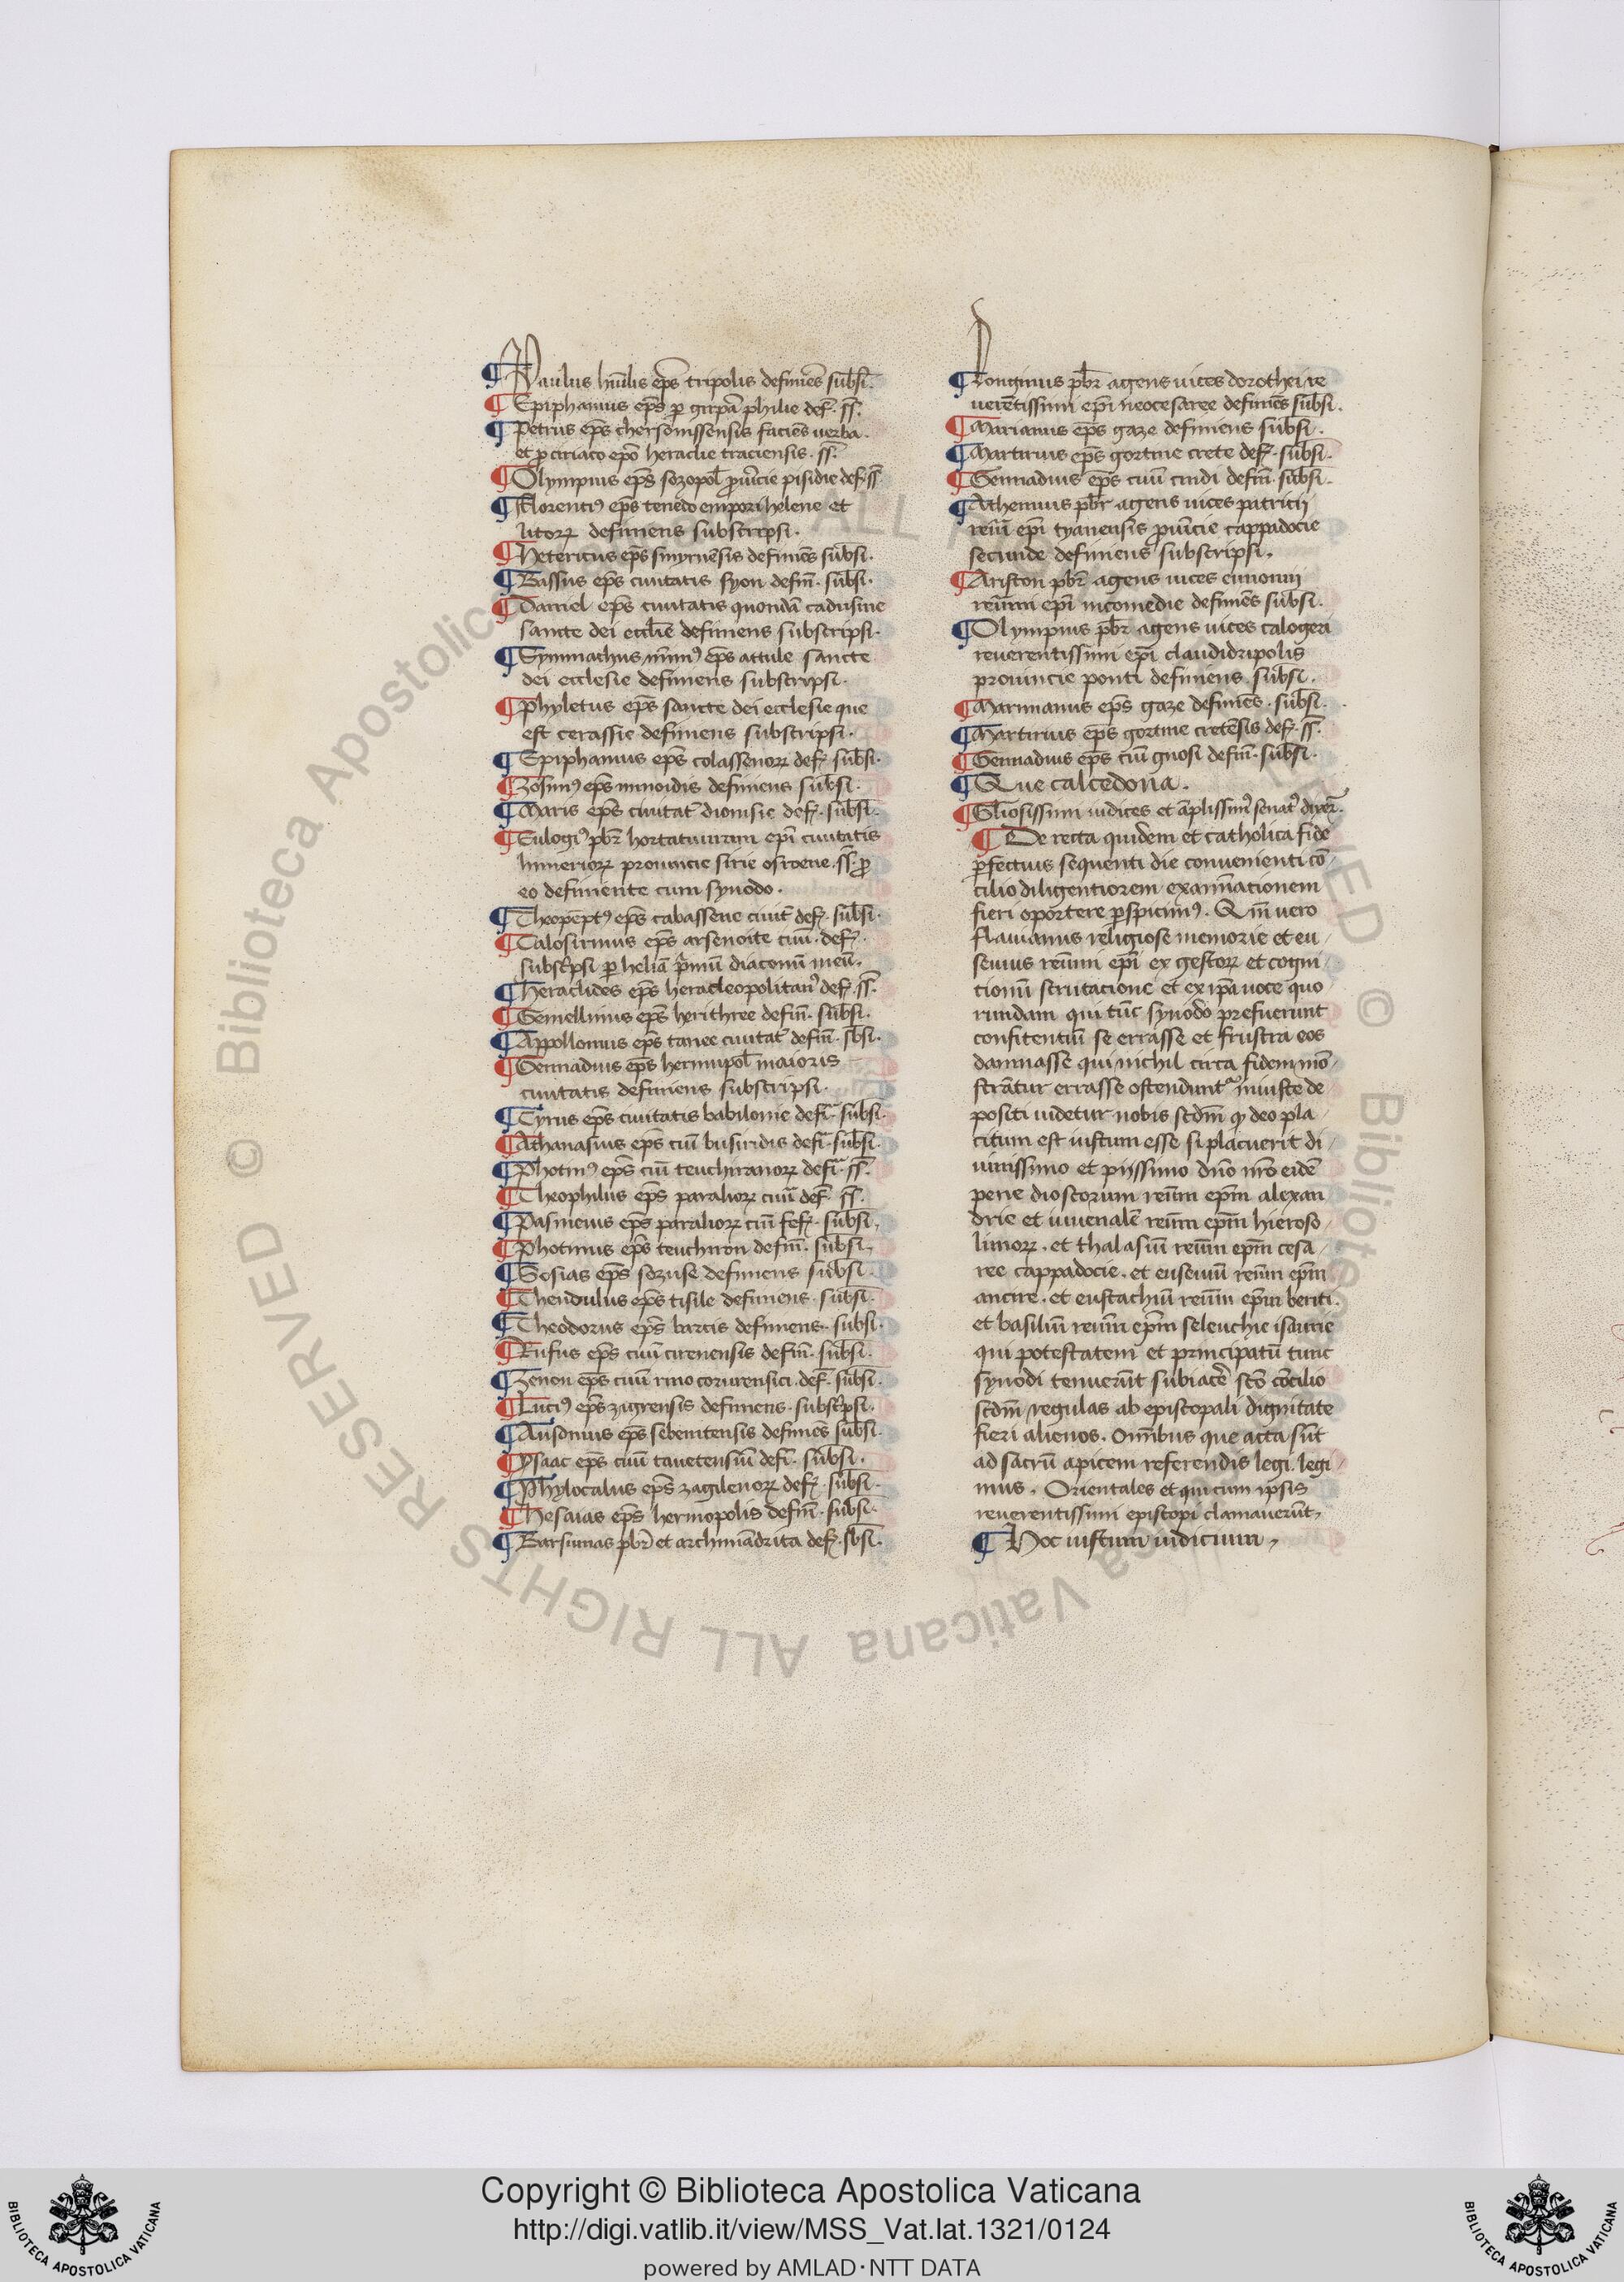 ¶ Paulus huīlis ep̄s tripolis definiēs subsi.
¶ Epiphanius ep̄s ꝑ girpā philie def. ss̄.
¶ Petrus ep̄s chersonissensis faciēs verba.
et ꝓ ciriaco ep̄o heraclie traciensis. ss̄.
¶ Olympius ep̄s sozopol̄ ꝓuīcie pisidie def. ss̄
¶ Florentiꝰ ep̄s tenedo empori helene et
litorꝝ definiens subscripsi.
¶ Hetericus ep̄s smyrnēsis definiēs subsi.
¶ Bassus ep̄s ciuitatis syon defin̄. subsi.
¶ Daniel ep̄s ciuitatis quondā cadusine
sancte dei eccl̄ie definiens subscripsi.
¶ Symmachus mīmꝰ ep̄s attule sancte
dei ecclesie definiens subscripsi.
¶ Phyletus ep̄s sancte dei ecclesie que
est cerassie definiens subscripsi.
¶ Epiphanius ep̄s colassenorꝝ def. subsi.
¶ Zosimꝰ ep̄s minoidis definiens subsi.
¶ Maris ep̄s ciuitat̄ dionisie def. subsi.
¶ Eulogiꝰ pb̄r hortatu ep̄i ciuitatis
himeriorꝝ prouincie sirie osroene. ss̄. ꝓ
eo definiente cum synodo.
¶ Theopēptꝰ ep̄s cabassene ciuit̄ def. subsi.
¶ Calosirinus ep̄s arsenoite ciuī. def.
subscͥpsi ꝑ heliā p̄mū diaconū meū.
¶ Heraclides ep̄s heracleopolitanꝰ def. ss̄.
¶ Gemellinus ep̄s herithree defin̄. subsi.
¶ Appollonius ep̄s tanee ciuitat̄ defin̄. sb̄si.
¶ Gennadius ep̄s hermupol̄ maioris
ciuitatis definiens subscripsi.
¶ Cyrus ep̄s ciuitatis babilonie defī. subsi.
¶ Athanasius ep̄s ciuī busiridis defī. subsi.
¶ Photinꝰ ep̄s ciuī teuchiranorꝝ defī. ss̄.
¶ Theophilus ep̄s paraliorꝝ ciuī def. ss̄.
¶ Pasmeius ep̄s paraliorꝝ ciuī fef. subsi.
¶ Photinus ep̄s teuchiron defin̄. subsi.
¶ Sosias ep̄s sozuse definiens subsi.
¶ Thendulus ep̄s tisile definiens. subsi.
¶ Theodorus ep̄s barcis definiens. subsi.
¶ Rufus ep̄s ciuī cirenensis defin̄. subsi.
¶ Zenon ep̄s ciuī rino corurensici. def. subsi.
¶ Luciꝰ ep̄s zugrensis definiens. subscͥpsi.
¶ Ausonius ep̄s sebenitensis definiēs subsi.
¶ Ysaac ep̄s ciuī tauetensiū defī. subsi.
¶ Phylocalus ep̄s zagilenorꝝ def. subsi.
¶ Hesaias ep̄s hermopolis defin̄. subsi.
¶ Barsumas pb̄r et archimādrita def. sb̄si.
¶ Longinus pb̄r agens uices dorothei re
uerētissimi ep̄i neocesaree definiēs subsi.
¶ Marianus ep̄s gaze definiens subsi.
¶ Martirius ep̄s gortine crete def. subsi.
¶ Gennadius ep̄s ciuī cnidi defin̄. subsi.
¶ Athenius pb̄r agens uices patricij
reuī ep̄i tyanensis ꝓuīcie cappadocie
secunde definiens subscripsi.
¶ Ariston pb̄r agens uices eunomij
reuīmi ep̄i nicomedie definiēs subsi.
¶ Olympius pb̄r agens uices calogeri
reuerentissimi ep̄i claudidripolis
prouincie ponti definiens subsi.
¶ Marinianus ep̄s gaze definiēs. subsi.
¶ Martirius ep̄s gortine cretēsis def. ss̄.
¶ Gennadius ep̄s ciuī gnosi defin̄. subsi.
¶ Que calcedona.
¶ Gl̄iosissimi iudices et āplissimꝰ senatꝰ dixer̄.
¶ De recta quidem et catholica fide
ꝑfectius sequenti die conuenienti cō
cilio diligentiorem examīationem
fieri oportere ꝑspicimꝰ. Qm̄ uero
flauianus religiose memorie et eu
seuius reuīmi ep̄i ex gestorꝝ et cogni
tionū scrutacione et ex ip̄a uoce quo
rundam qui tūc synodo prefuerunt
confitentiū se errasse et frustra eos
damnasse qui nichil circa fidem mō
strātur errasse ostenduntᷣ iniuste de
positi uidetur nobis scd̄m qꝫ deo pla
citum est iustum esse si placuerit di
uinissimo et piissimo dn̄o nr̄o eidē
pene dioscorum reuīm ep̄m alexan
drie et iuuenalē reuīm ep̄m hieroso
limorꝝ. et thalasiū reuīm ep̄m cesa
ree cappadocie. et euseuiū reuīm ep̄m
ancire. et eustachiū reuīm ep̄m beriti.
et basiliū reuīm ep̄m seleuchie isaurie
qui potestatem et principatū tunc
synodi tenuerūt subiacēr scō cōcilio
scd̄m regulas ab episcopali dignitate
fieri alienos. Omībus que acta sūt
ad sacrū apicem referendis legi. legi
mus. Orientales et qui cum ipsis
reuerentissimi episcopi clamauerūt,
¶ Hoc iustum iudicium,
© Biblioteca Apostolica Vaticana ALL RIGHTS RESERVED
Copyright © Biblioteca Apostolica Vaticana
http://digi.vatlib.it/view/MSS_Vat.lat.1321/0124
powered by AMLAD·NTT DATA
BIBLIOTECA APOSTOLICA VATICANA
BIBLIOTECA APOSTOLICA VATICANA